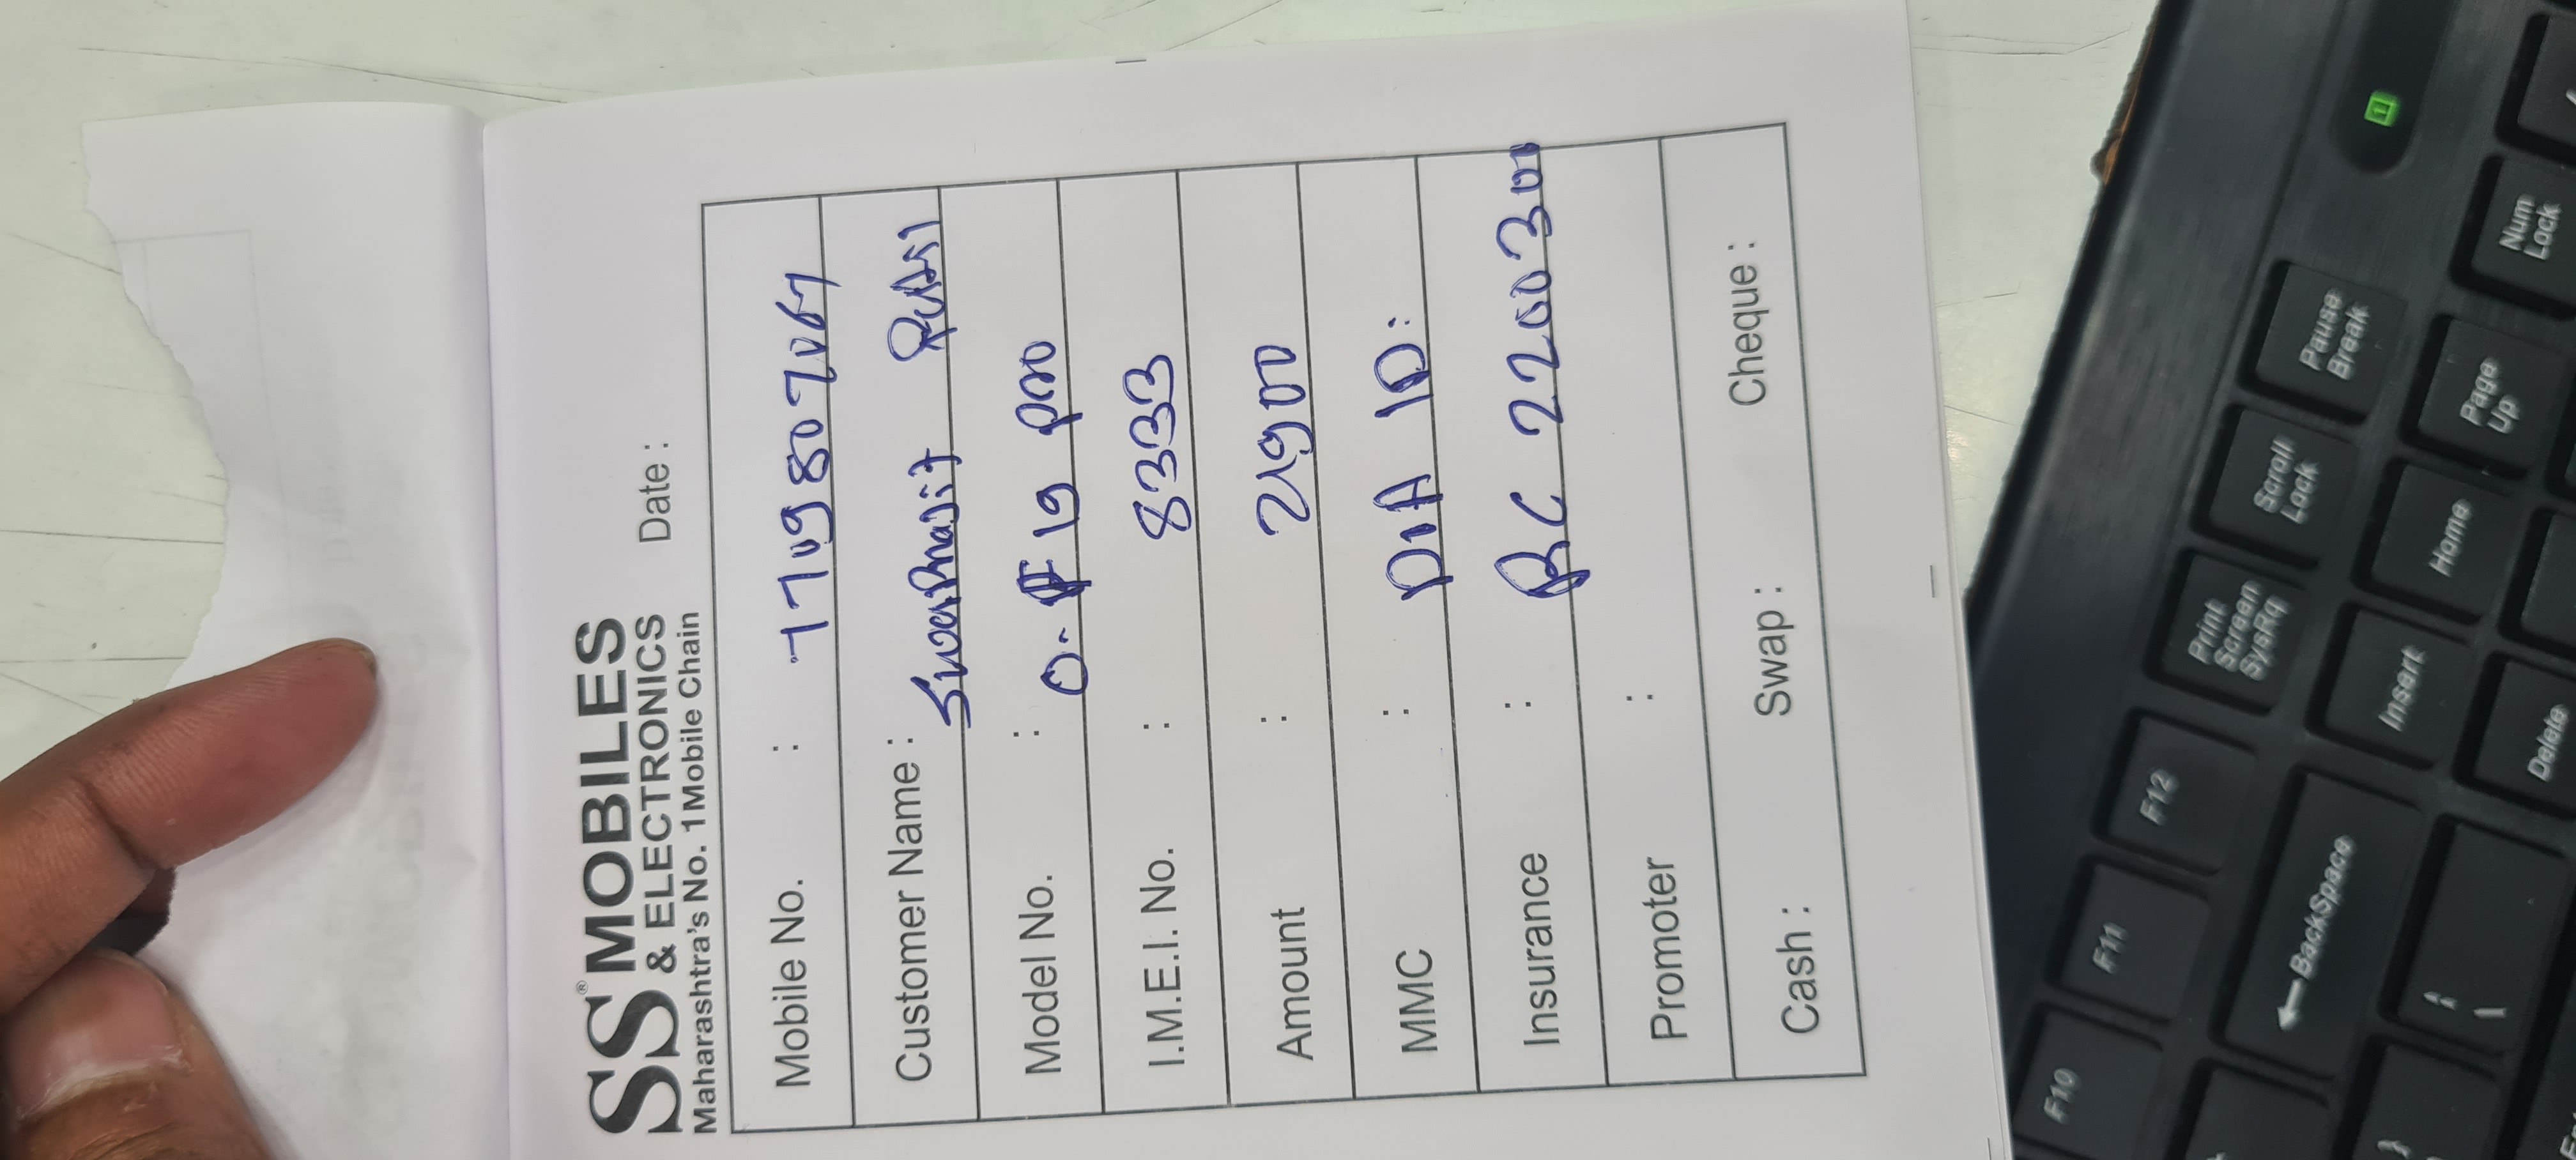 SS® MOBILES
& ELECTRONICS
Maharashtra's No. 1 Mobile Chain
Date :
Mobile No. : 7709807067
Customer Name :
Model No. : O- F 19 pro
I.M.E.I. No. : 8333
Amount : 21900
MMC : DIA ID:
Insurance : RC 2200300
Promoter :
Cash : Swap : Cheque :
F10
F11
F12
Print Screen SysRq
Scroll Lock
Pause Break
BackSpace
Insert
Home
Page Up
Num Lock
Delete